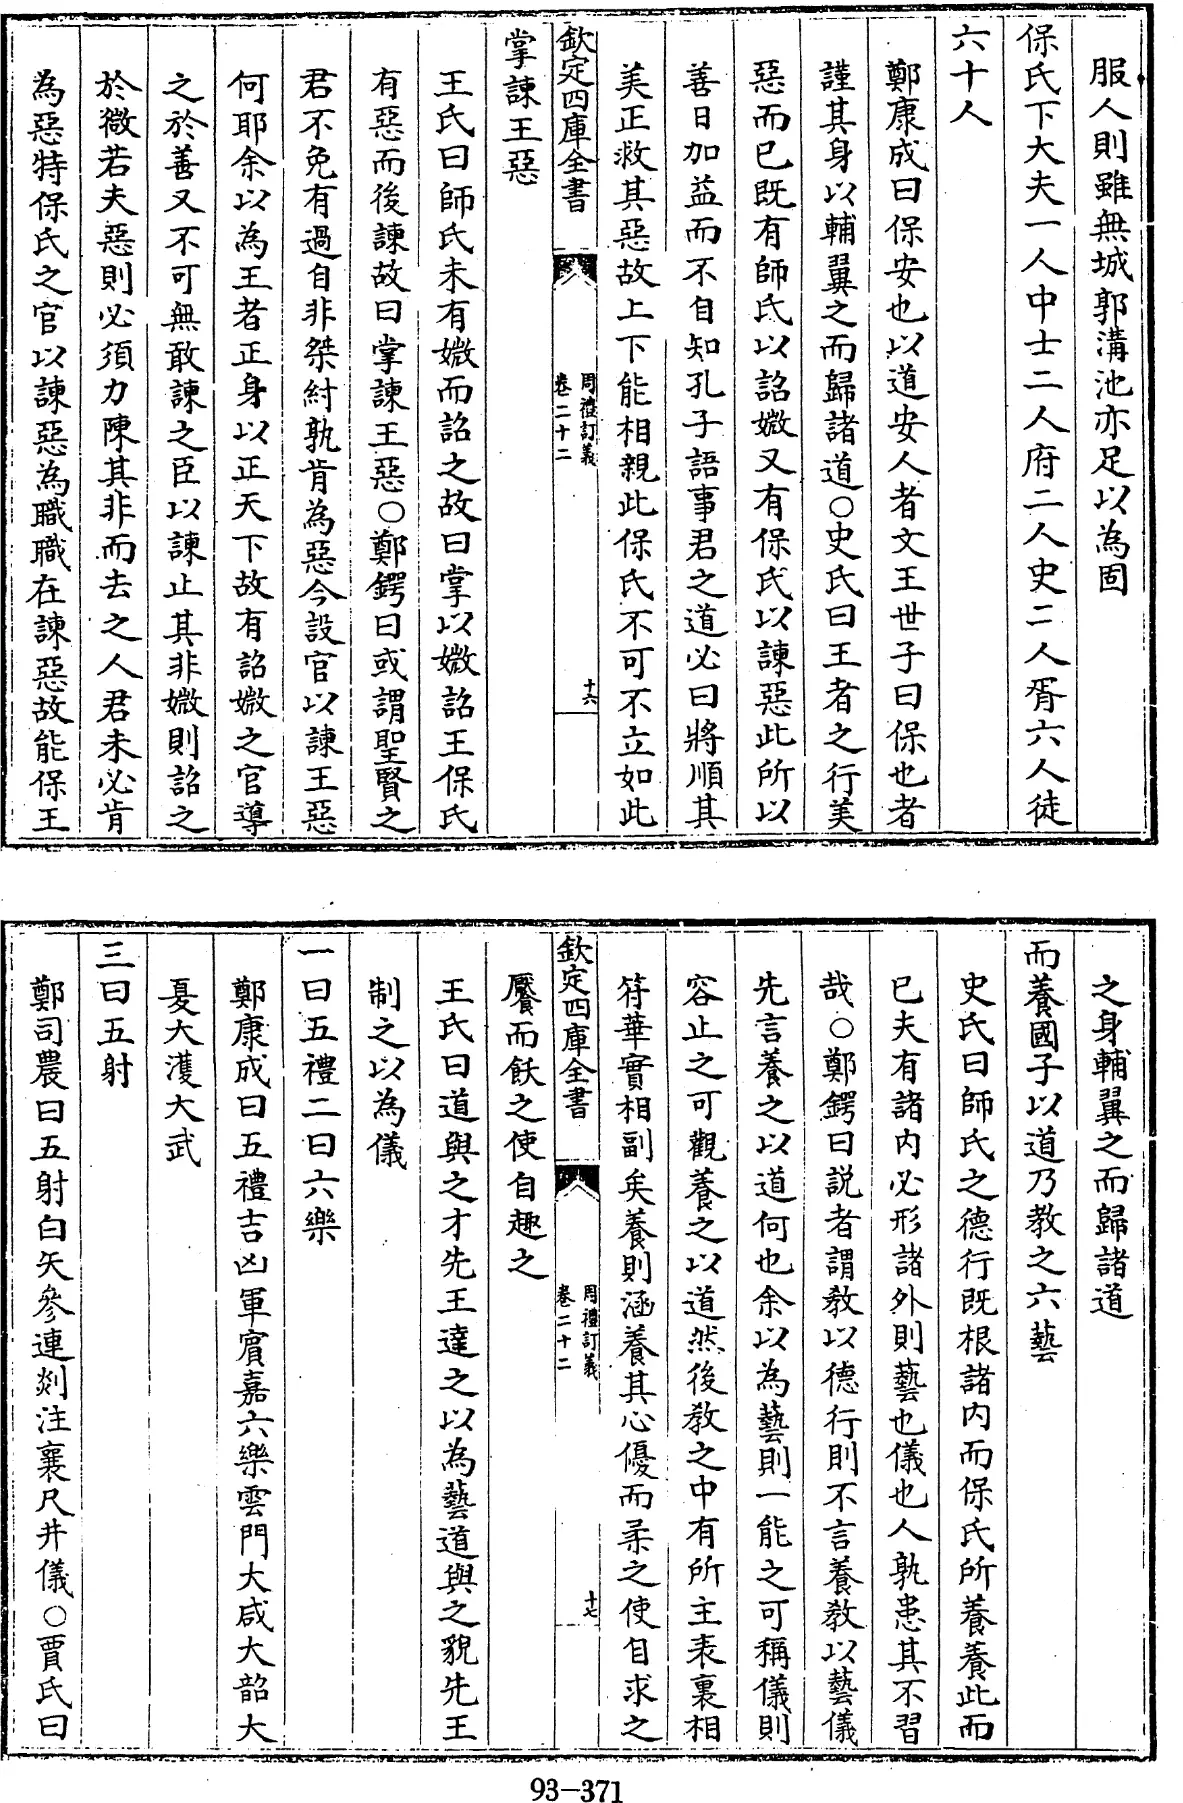 服人則雖無城郭溝池亦足以為固
保氏下大夫一人中士二人府二人史二人胥六人徒
六十人
鄭康成曰保安也以道安人者文王世子曰保也者
謹其身以輔翼之而歸諸道○史氏曰王者之行美
惡而已既有師氏以詔媺又有保氏以諫惡此所以
善日加益而不自知孔子語事君之道必曰將順其
美正救其惡故上下能相親此保氏不可不立如此
欽定四庫全書
周禮訂義
卷二十二
十六
掌諫王惡
王氏曰師氏未有媺而詔之故曰掌以媺詔王保氏
有惡而後諫故曰掌諫王惡○鄭鍔曰或謂聖賢之
君不免有過自非桀紂孰肯為惡今設官以諫王惡
何耶余以為王者正身以正天下故有詔媺之官導
之於善又不可無敢諫之臣以諫止其非媺則詔之
於微若夫惡則必須力陳其非而去之人君未必肯
為惡特保氏之官以諫惡為職職在諫惡故能保王
之身輔翼之而歸諸道
而養國子以道乃教之六藝
史氏曰師氏之德行既根諸内而保氏所養養此而
已夫有諸内必形諸外則藝也儀也人孰患其不習
哉○鄭鍔曰説者謂教以德行則不言養教以藝儀
先言養之以道何也余以為藝則一能之可稱儀則
容止之可觀養之以道然後教之中有所主表裏相
符華實相副矣養則涵養其心優而柔之使自求之
欽定四庫全書
周禮訂義
卷二十二
十七
饜而飫之使自趣之
王氏曰道與之才先王達之以為藝道與之貌先王
制之以為儀
一曰五禮二曰六樂
鄭康成曰五禮吉凶軍賓嘉六樂雲門大咸大韶大
夏大濩大武
三曰五射
鄭司農曰五射白矢參連剡注襄尺井儀○賈氏曰
93-371